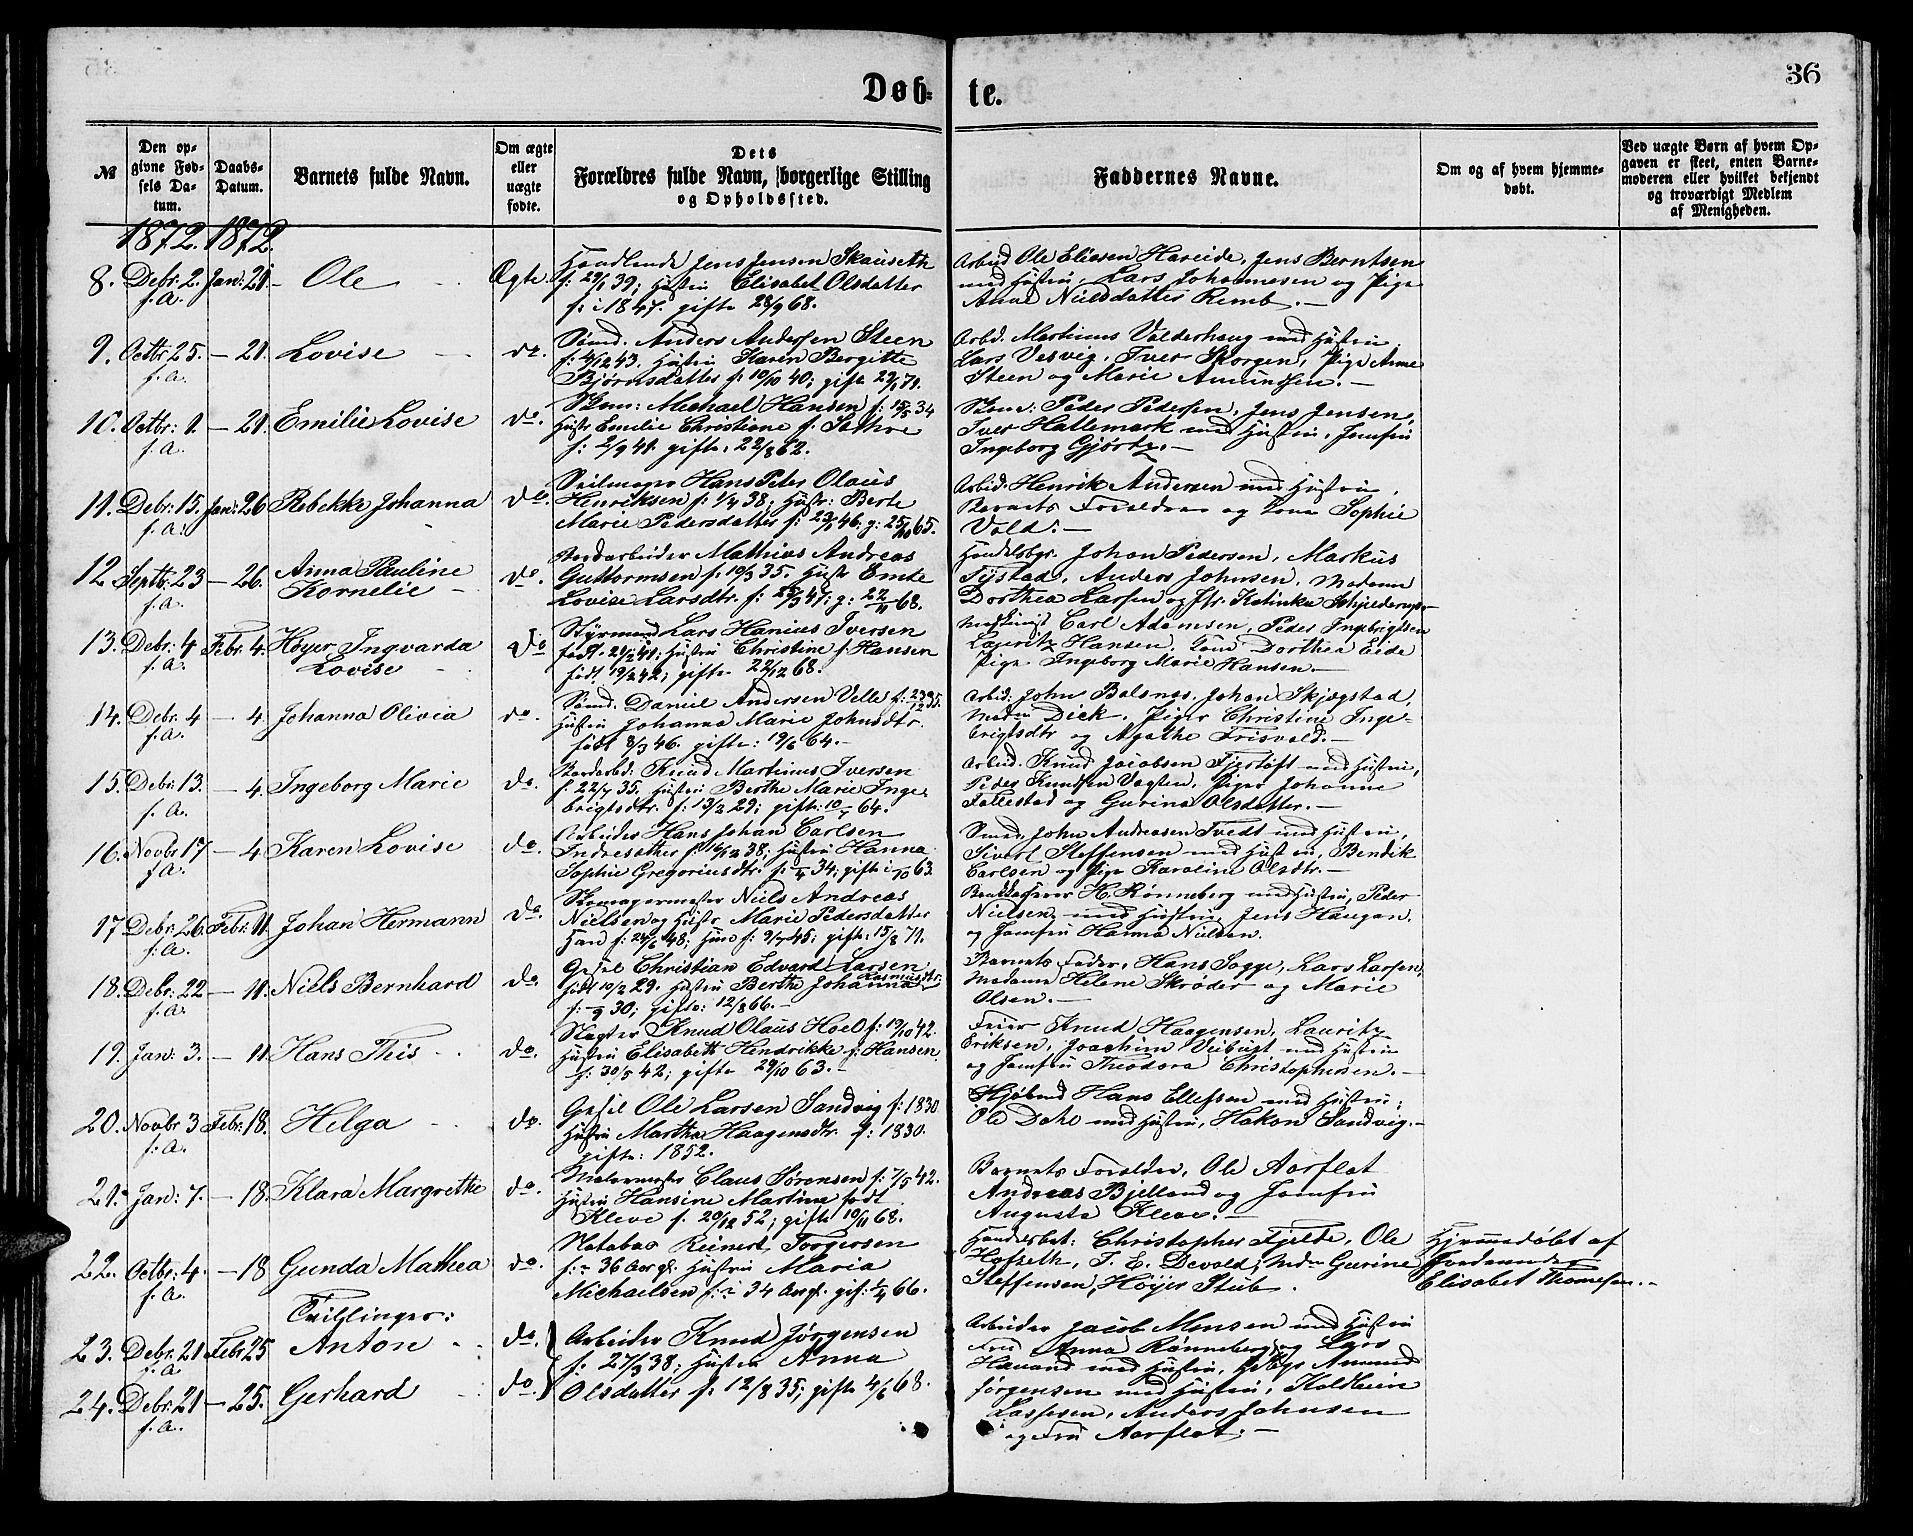 36
Døb-
te.
№
Den op-
givne Fød-
sels Da-
tum.
Daabs-
Datum.
Barnets fulde Navn.
Om ægte
eller
uægte
fødte.
Dets
Forældres fulde Navn, borgerlige Stilling
og Opholdssted.
Faddernes Navne.
Om og af hvem hjemme-
døbt.
Ved uægte Børn af hvem Op-
gaven er skeet, enten Barne-
moderen eller hvilket bekjendt
og troværdigt Medlem
af Menigheden.
1872. 1872.
8. Debr: 2. Jan: 21 - Ole Ægte.
f. A.
Jens Jensen Skauseth
f: 29/1 39; Hustru Elisabet Olsdatter
f: i 1847. gifte 28/9 68.
Arbeid Ole Eliasen Hareide, Jens Berntsen
med Hustru, Lars Johannesen og Pige
Anne Nielsdatter Remb. -
9. Octbr: 25. - 21. Lovise do.
f. A.
Sømd. Anders Andersen Steen
f: 4/12 43. Hustru Karen Bergitte
Bjørnsdatter f: 10/10 40; gifte 29/1 71.
Arbd. Martinus Valderhaug med Hustru,
Lars Vesvig, Iver Skorgen, Pige Anne
Steen og Marie Amundsen. -
10. Octbr: 1. - 21. Emilie Lovise do.
f. A.
Skom: Michael Hansen f: 15/5 34
Hustr Emilie Christiane f.
f: 2/9 41. gifte: 22/8 62.
Skom: Peder Pedersen, Jens Jensen,
Iver Hallemark med Hustru, Jomfru
Ingeborg Gjørtz. -
11. Debr: 15. Jan: 26 Rebekka Johanna do.
f. A.
Seilmager Hans Peter Olaus
Henriksen f: 1/4 38; Hustr: Berte
Marie Pedersdatter f: 23/1 46. g: 25/10 65.
Arbeid. Henrik Andersen med Hustru,
Barnets Forældre og Kone Sophie
Vold. -
12. Septbr: 23 - 26. Anna Pauline
Kornelie - do.
f. A.
Mathias Andreas
Guttormsen f: 10/3 35. Hustr Emte
Lovise Larsdtr. f: 25/3 41; g: 22/11 68.
Handelsbgr. Johan Pedersen, Markus
Fjstad, Anders Johnsen, Madame
Dorthea Larsen og Fr. Katinka Schjelderup -
13. Debr: 4 Febr: 4. Høyer Ingvarda
Lovise - do
f. A.
Styrmand Lars Hanius Iversen
født. 21/2 41; Hustru Christine f. Hansen
født 19/2 42; gifte 22/12 68.
Carl Adamsen, Peder Ingebrigtsen
Lauritz Hansen, Kone Dorthea Eide
Pige Ingeborg Marie Hansen. -
14. Debr: 4 - 4. Johanna Olivia do.
f. A.
Sømd. Daniel Andersen Velle f: 23/12 35.
Hustru Johanna Marie Johnsdtr.
født 8/3 46. gifte: 19/6 64. -
Arbeid. John Balsnes, Johan Skjegstad,
Madm Dick, Piger Christine Inge-
brigtsdtr og Agathe Frisvold. -
15. Debr: 13. - 4. Ingeborg Marie do.
f. A.
Knud Martinus Iversen
f. 22/7 35. Hustru Berthe Marie Inge-
brigtsdtr. f: 13/2 29; gifte: 10/7 64.
Arbeid. Knud Jacobsen Fjertoft med Hustru,
Peder Knudsen Vagsten, Piger Johanne
Fallestad og Gurina Olsdatter. -
16. Novbr 17 - 4 Karen Lovise do.
f. A.
Arbeider Hans Johan Carlsen
f: 16/12 38; Hustru Hanna
Sophie Gregoriusdtr. f: 34; gifte: 63.
Smed, John Andreasen Tvedt med Hustru,
Sivert Steffensen med Hustru, Bendik
Carlsen og Pige Karoline Olsdtr. -
17 Debr: 26. Febr: 11. Johan Hermann do.
f. A.
Skomagermester Niels Andreas
Nielsen og Hustr Marie Pedersdatter
Han f: 24/6 48; Hun f: 9/7 45; gifte: 15/8 71.
H. Rønneberg med Hustru, Peder
Nielsen med Hustru, Jens Haugan.
og Jomfru Hanna Nielsen.
18. Debr: 22 - 11. Niels Bernhard do.
f. A.
Gesel Christian Edvard Larsen
født 10/2 29. Hustru Berthe Johanna Rasmusdtr.
f: 30; gifte: 12/8 66. -
Barnets Fader, Hans Sogge, Lars Larsen,
Madame Helene Skrøder og Marie
Olsen. -
19. Jan: 3. - 11. Hans This do.
Slagter Knud Olaus Hoel f: 19/10 42.
Hustru Elisabeth Hendrikke f: Hansen
f: 30/5 42; gifte 29/10 63. -
Feier Knud Haagensen, Lauritz
Eriksen, Joachim med Hustru
og Jomfru Theodora Christophersen. -
20. Novbr 3 Febr: 18. Helga do.
f. A.
Gesel Ole Larsen Sandvig f: 1830.
Hustru Martha Haagensdtr. f: 1830.
gifte: 1852.
Hans Ellefsen med Hustru;
Ole Dahl med Hustru, Hakon Sandvig. -
21. Jan: 7. - 18. Klara Margrethe do.
Malermester Claus Sørensen f: 7/5 42.
Hustru Hansine Martine født
Kleve f. 20/12 52; gifte 10/11 68.
Barnets Forældre, Ole Aarflot
Andreas Bjelland og Jomfru
Augusta Kleve. -
22. Octbr: 4. - 18 Gunda Mathea do.
f. A.
Reinert Torgersen
f: 36 Aar gl. Hustru Maria
Michaelsen f: 34 Aar gl. gif: 1/4 66.
Christopher Fjelde, Ole
Hofseth, T. E. Devold, Mdm Gurine
Steffensen, Høyer Stub.
Hjemmedøbt af
Jordemoder
Elisabet Thomesen. -
Tvillinger:
23. Debr: 21 Febr 25 Anton do.
f. A
24. Debr: 21 - 25. Gerhard do.
f. A.
Arbeider Knud Jørgensen
f: 27/3 38; Hustru Anna
Olsdatter f: 12/8 35; gifte 4/6 68.
Arbeider Jacob Monsen med Hustru
Anna Rønneberg og Lars
Havand med Hustru, Amund
Jørgensen med Hustru,
Lassesen, Anders Johnsen
og Fru Aarflot. -